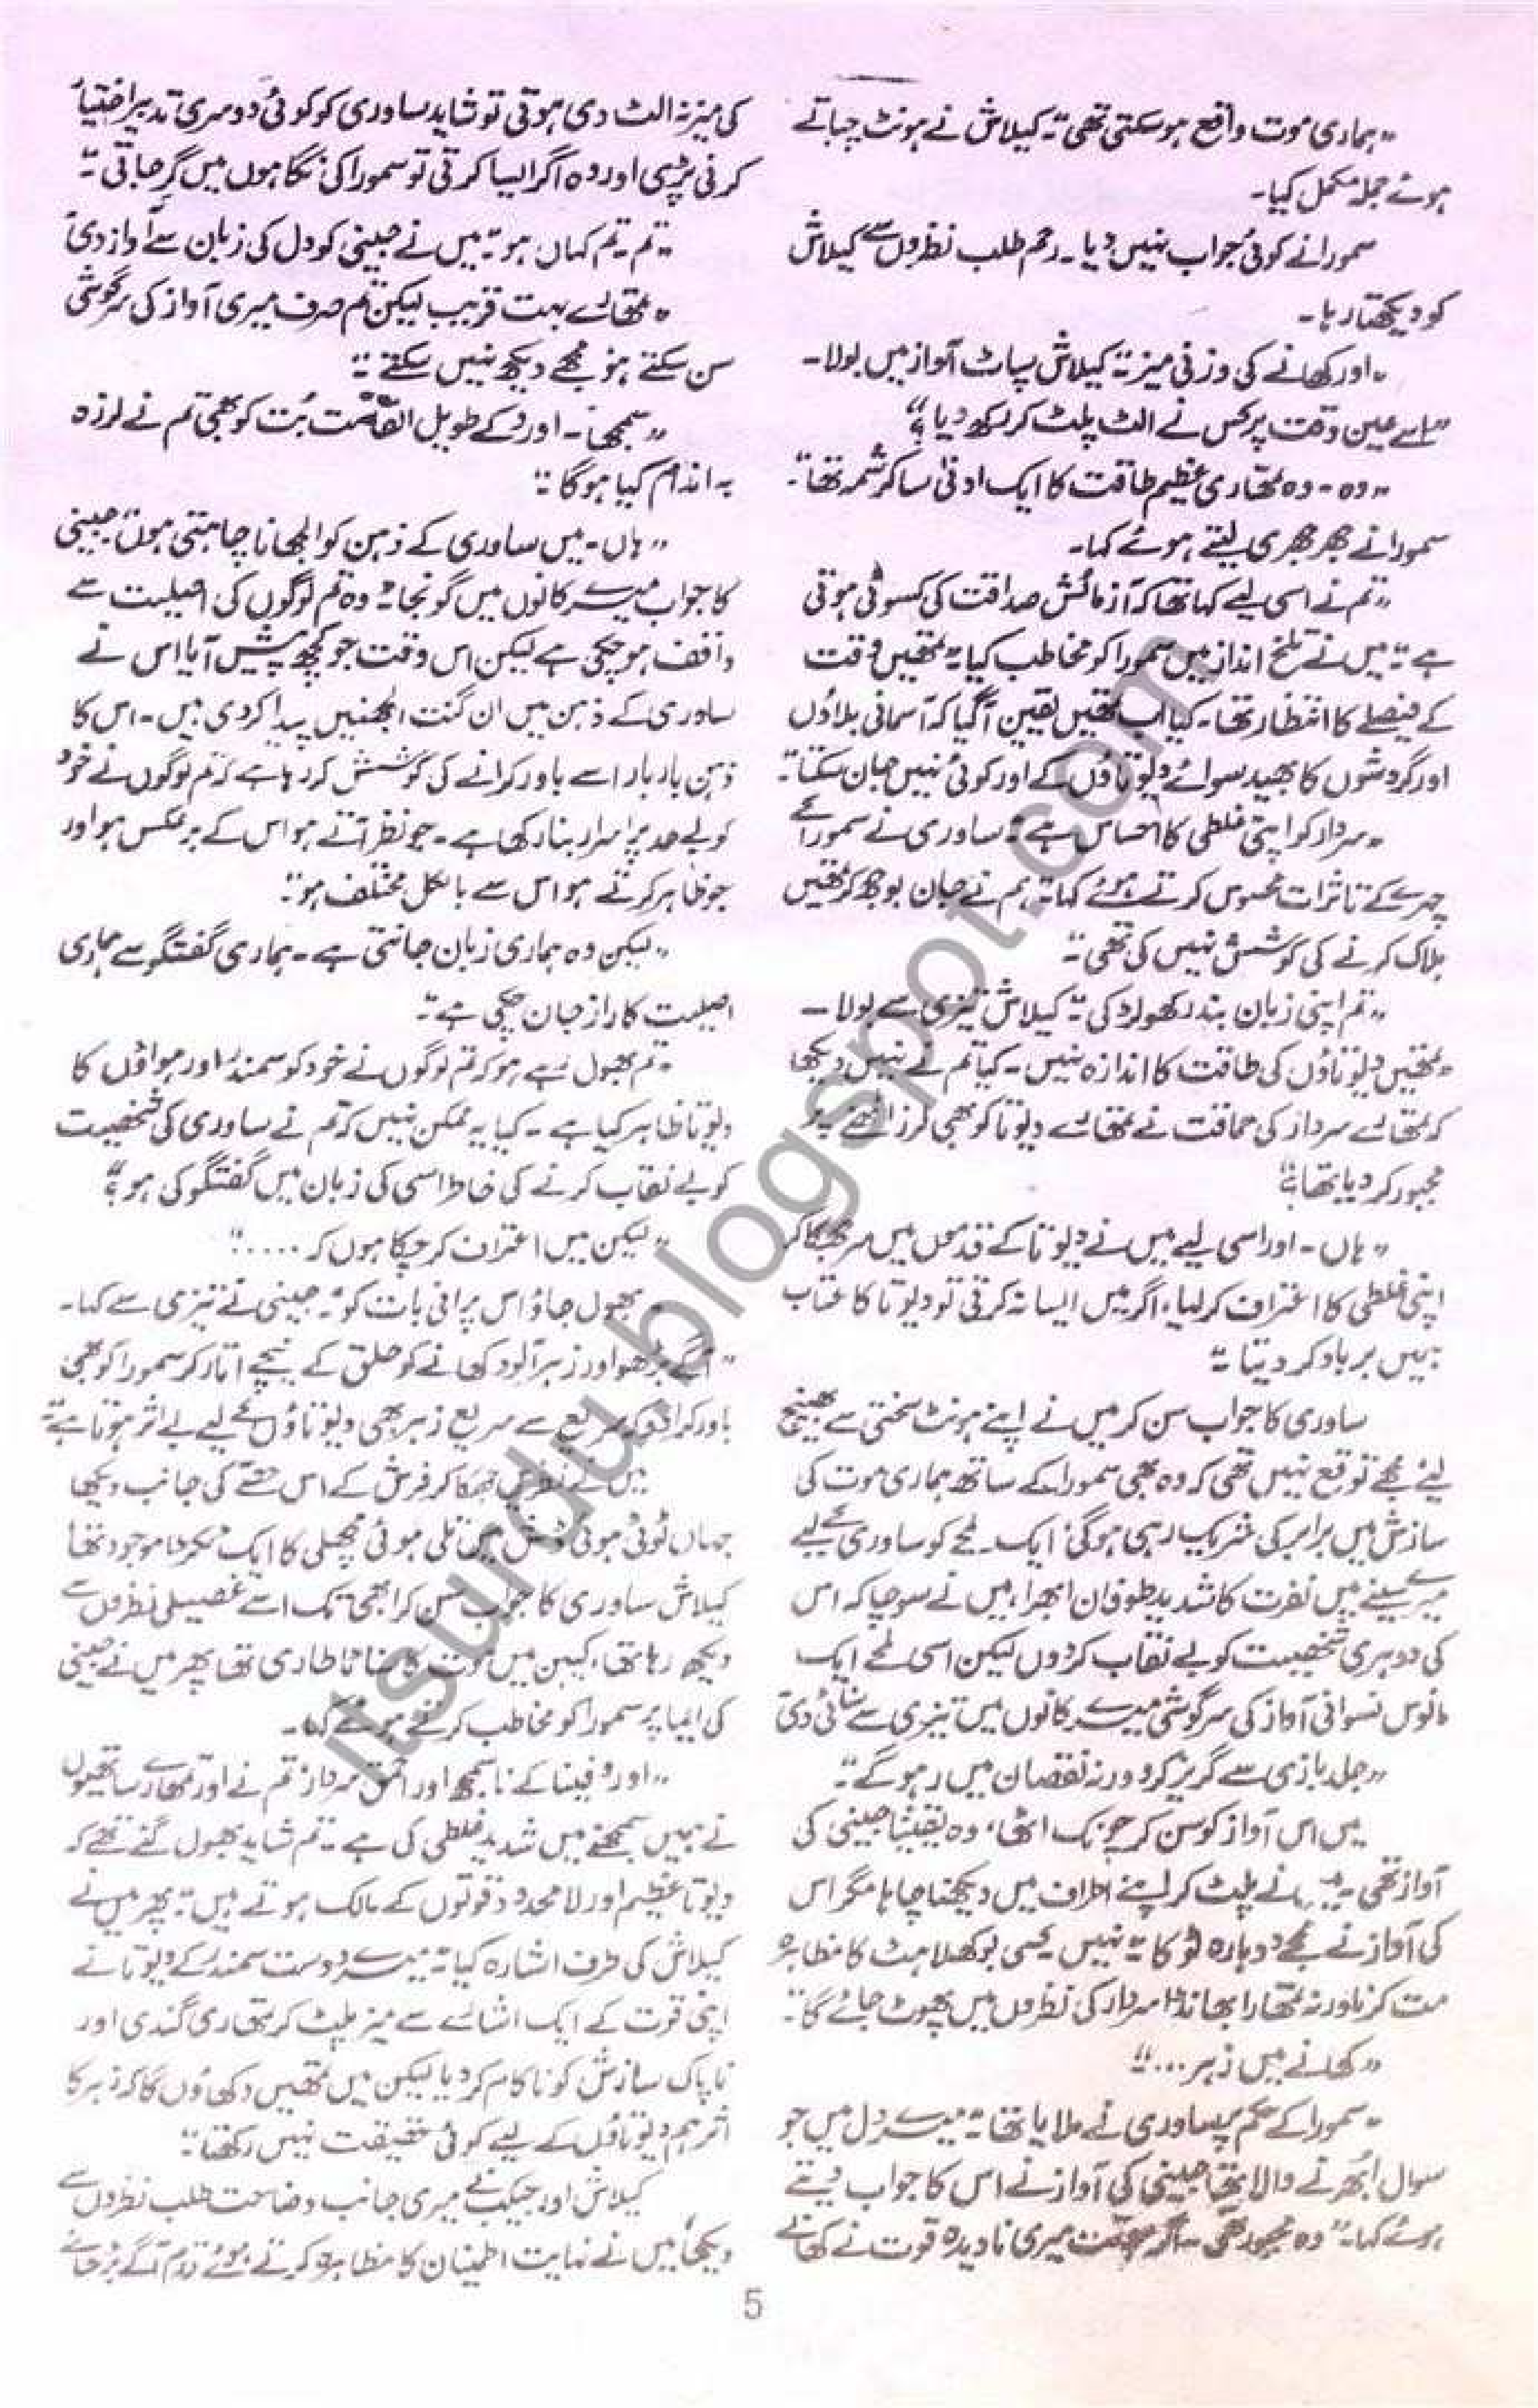 ”ہماری موت واقع ہو سکتی تھی“ کیلاش نے ہونٹ چباتے
ہوئے جملہ مکمل کیا۔
سمورا نے کوئی جواب نہیں دیا۔ رحم طلب نظروں سے کیلاش
کو دیکھتا رہا۔
”اور کھانے کی وزنی میز“ کیلاش سپاٹ آواز میں بولا۔
”اسے عین وقت پر کس نے الٹ پلٹ کر رکھ دیا؟“
”وہ - وہ تمھاری عظیم طاقت کا ایک ادنیٰ سا کرشمہ تھا“۔
سمورا نے جھرجھری لیتے ہوئے کہا۔
”تم نے اسی لیے کہا تھا کہ آزمائش صداقت کی کسوٹی ہوتی
ہے“ میں نے تلخ انداز میں سمورا کو مخاطب کیا ”تمھیں وقت
کے فیصلے کا انتظار تھا۔ کیا اب تمھیں یقین آگیا کہ آسمانی بلاؤں
اور گردشوں کا بھید سوائے دیوتاؤں کے اور کوئی نہیں جان سکتا“۔
”سردار کو اپنی غلطی کا احساس ہے“ ساوری نے سمورا کے
چہرے کے تاثرات محسوس کرتے ہوئے کہا ”ہم نے جان بوجھ کر تمھیں
ہلاک کرنے کی کوشش نہیں کی تھی“۔
”تم اپنی زبان بند رکھو لڑکی“ کیلاش تیزی سے بولا۔
”تمھیں دیوتاؤں کی طاقت کا اندازہ نہیں۔ کیا تم نے نہیں دیکھا
کہ تمھارے سردار کی حماقت نے تمھارے دیوتا کو بھی لرز اٹھنے پر
مجبور کر دیا تھا؟“
”ہاں - اور اسی لیے میں نے دیوتا کے قدموں میں سر جھکا کر
اپنی غلطی کا اعتراف کر لیا، اگر میں ایسا نہ کرتی تو دیوتا کا عتاب
ہمیں برباد کر دیتا“
ساوری کا جواب سن کر میں نے اپنے ہونٹ سختی سے بھینچ
لیے مجھے توقع نہیں تھی کہ وہ بھی سمورا کے ساتھ ہماری موت کی
سازش میں برابر کی شریک رہی ہوگی، ایک لمحے کو ساوری کے لیے
میرے سینے میں نفرت کا شدید طوفان ابھرا، میں نے سوچا کہ اس
کی دوہری شخصیت کو بے نقاب کر دوں لیکن اسی لمحے ایک
مانوس نسوانی آواز کی سرگوشی میرے کانوں میں تیزی سے سنائی دی
”جلد بازی سے گریز کرو ورنہ نقصان میں رہو گے“۔
میں اس آواز کو سن کر چونک اٹھا، وہ یقیناً جینی کی
آواز تھی۔ میں نے پلٹ کر اپنے اطراف میں دیکھنا چاہا مگر اس
کی آواز نے مجھے دوبارہ ٹوکا ”نہیں کسی بوکھلاہٹ کا مظاہرہ
مت کرنا ورنہ تمھارا بھانڈا سردار کی نظروں میں پھوٹ جائے گا“۔
”کھانے میں زہر...“
”سمورا کے حکم پر ساوری نے ملایا تھا“ میرے دل میں جو
سوال ابھرنے والا تھا جینی کی آواز نے اس کا جواب دیتے
ہوئے کہا۔ ”وہ مجبور تھی میری نادیدہ قوت نے کھانے
کی میز نہ الٹ دی ہوتی تو شاید ساوری کو کوئی دوسری تدبیر اختیار
کرنی پڑتی اور وہ اگر ایسا کرتی تو سمورا کی نگاہوں میں گر جاتی“
”تم - تم کہاں ہو“ میں نے جینی کو دل کی زبان سے آواز دی
”تمھارے بہت قریب لیکن تم صرف میری آواز کی سرگوشی
سن سکتے ہو مجھے دیکھ نہیں سکتے“
”سمجھا۔ اورڈ کے طویل القامت بُت کو بھی تم نے لرزہ
بہ اندام کیا ہوگا“
”ہاں۔ میں ساوری کے ذہن کو الجھانا چاہتی ہوں“ جینی
کا جواب میرے کانوں میں گونجا ”وہ تم لوگوں کی اصلیت سے
واقف ہو چکی ہے لیکن اس وقت جو کچھ پیش آیا اس نے
ساوری کے ذہن میں ان گنت الجھنیں پیدا کردی ہیں۔ اس کا
ذہن بار بار اسے باور کرانے کی کوشش کر رہا ہے کہ تم لوگوں نے خود
کو بے حد پر اسرار بنا رکھا ہے۔ جو نظر آتے ہو اس کے برعکس ہو اور
جو ظاہر کرتے ہو اس سے بالکل مختلف ہو“۔
”لیکن وہ ہماری زبان جانتی ہے۔ ہماری گفتگو سے ہماری
اصلیت کا راز جان چکی ہے“
”تم بھول رہے ہو کہ تم لوگوں نے خود کو سمندر اور ہواؤں کا
دیوتا ظاہر کیا ہے۔ کیا یہ ممکن نہیں کہ تم نے ساوری کی شخصیت
کو بے نقاب کرنے کی خاطر اسی کی زبان میں گفتگو کی ہو؟“
”لیکن میں اعتراف کر چکا ہوں کہ .....“
”بھول جاؤ اس پرانی بات کو“ جینی نے تیزی سے کہا۔
”آگے بڑھو اور زہر آلود کھانے کو حلق کے نیچے اتار کر سمورا کو بھی
باور کرا دو کہ سریع سے سریع زہر بھی دیوتاؤں کے لیے بے اثر ہوتا ہے“
میں نے نظریں جھکا کر فرش کے اس حصے کی جانب دیکھا
جہاں ٹوٹی ہوئی ڈش میں تلی ہوئی مچھلی کا ایک ٹکڑا موجود تھا
کیلاش ساوری کا جواب سن کر ابھی تک اسے غصیلی نظروں سے
دیکھ رہا تھا، کیبن میں موت کا سناٹا طاری تھا پھر میں نے جینی
کی ایما پر سمورا کو مخاطب کرتے ہوئے کہا۔
”اورڈفینا کے ناسمجھ اور احمق سردار تم نے اور تمھارے ساتھیوں
نے ہمیں سمجھنے میں شدید غلطی کی ہے“ تم شاید بھول گئے تھے کہ
دیوتا عظیم اور لامحدود قوتوں کے مالک ہوتے ہیں“ پھر میں نے
کیلاش کی طرف اشارہ کیا ”میرے دوست سمندر کے دیوتا نے
اپنی قوت کے ایک اشارے سے میز پلٹ کر تمھاری گندی اور
ناپاک سازش کو ناکام کر دیا لیکن میں تمھیں دکھاؤں گا کہ زہر کا
اثر ہم دیوتاؤں کے لیے کوئی حقیقت نہیں رکھتا“۔
کیلاش اور جیکب نے میری جانب وضاحت طلب نظروں سے
دیکھا، میں نے نہایت اطمینان کا مظاہرہ کرتے ہوئے قدم آگے بڑھائے
5
itsurdu.blogspot.com